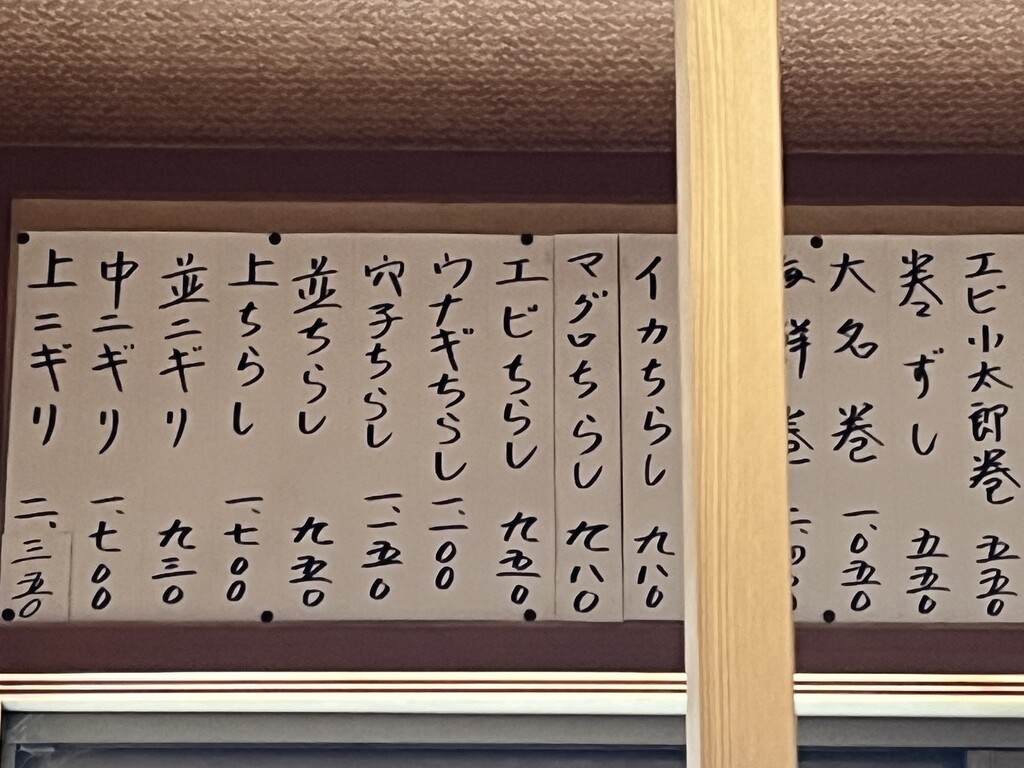 エビ小太郎巻 五五〇
巻ずし 五五〇
大名巻 一、〇五〇
鮮巻
イカちらし 九八〇
マグロちらし 九八〇
エビちらし 九五〇
ウナギちらし 一、一〇〇
穴子ちらし 一、一五〇
並ちらし 九五〇
上ちらし 一、七〇〇
並ニギリ 九三〇
中ニギリ 一、七〇〇
上ニギリ 二、三五〇